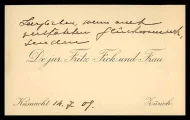 Herzlichen, wenn auch
verspäteten Glückwunsch,
senden
Dr. jur. Fritz Fick und Frau
Küsnacht 14. 7. 09. Zürich